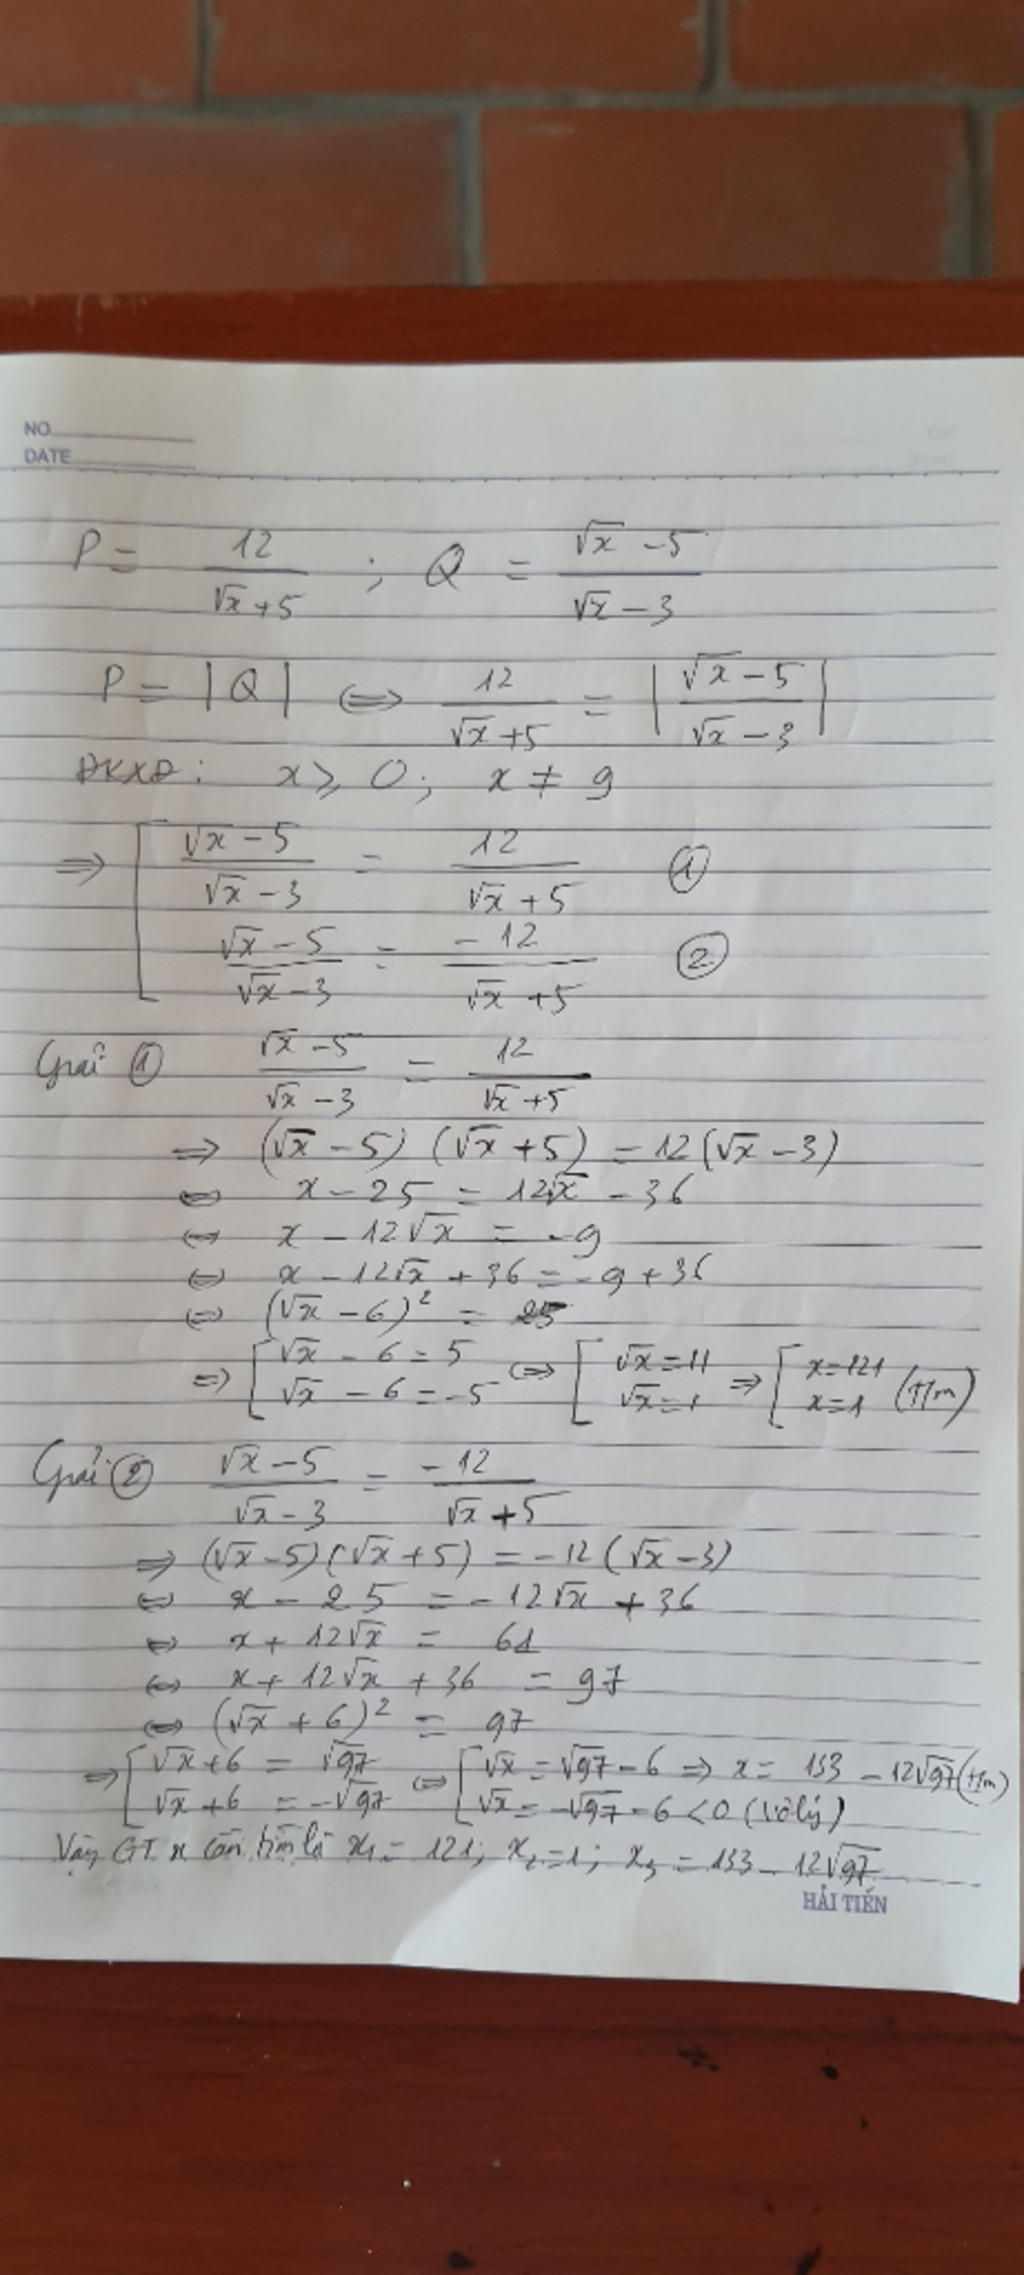 NO
DATE
P = 12/(√x + 5) ; Q = (√x - 5)/(√x - 3)
P = |Q| ⇔ 12/(√x + 5) = |(√x - 5)/(√x - 3)|
ĐKXĐ : x ⩾ 0 ; x ≠ 9
⇒ [ (√x - 5)/(√x - 3) = 12/(√x + 5) ①
(√x - 5)/(√x - 3) = -12/(√x + 5) ②
Giải ① (√x - 5)/(√x - 3) = 12/(√x + 5)
⇒ (√x - 5) (√x + 5) = 12 (√x - 3)
⇔ x - 25 = 12√x - 36
⇔ x - 12√x = -9
⇔ x - 12√x + 36 = -9 + 36
⇔ (√x - 6)² = 25
⇒ [ √x - 6 = 5 ⇔ [ √x = 11 ⇒ [ x = 121
√x - 6 = -5 √x = 1 x = 1 (t/m)
Giải ② (√x - 5)/(√x - 3) = -12/(√x + 5)
⇒ (√x - 5)(√x + 5) = -12 (√x - 3)
⇔ x - 25 = -12√x + 36
⇔ x + 12√x = 61
⇔ x + 12√x + 36 = 97
⇔ (√x + 6)² = 97
⇒ [ √x + 6 = √97 ⇔ [ √x = √97 - 6 ⇒ x = 133 - 12√97 (t/m)
√x + 6 = -√97 √x = -√97 - 6 < 0 (vô lý)
Vậy GT x cần tìm là x₁ = 121; x₂ = 1; x₃ = 133 - 12√97
HẢI TIẾN